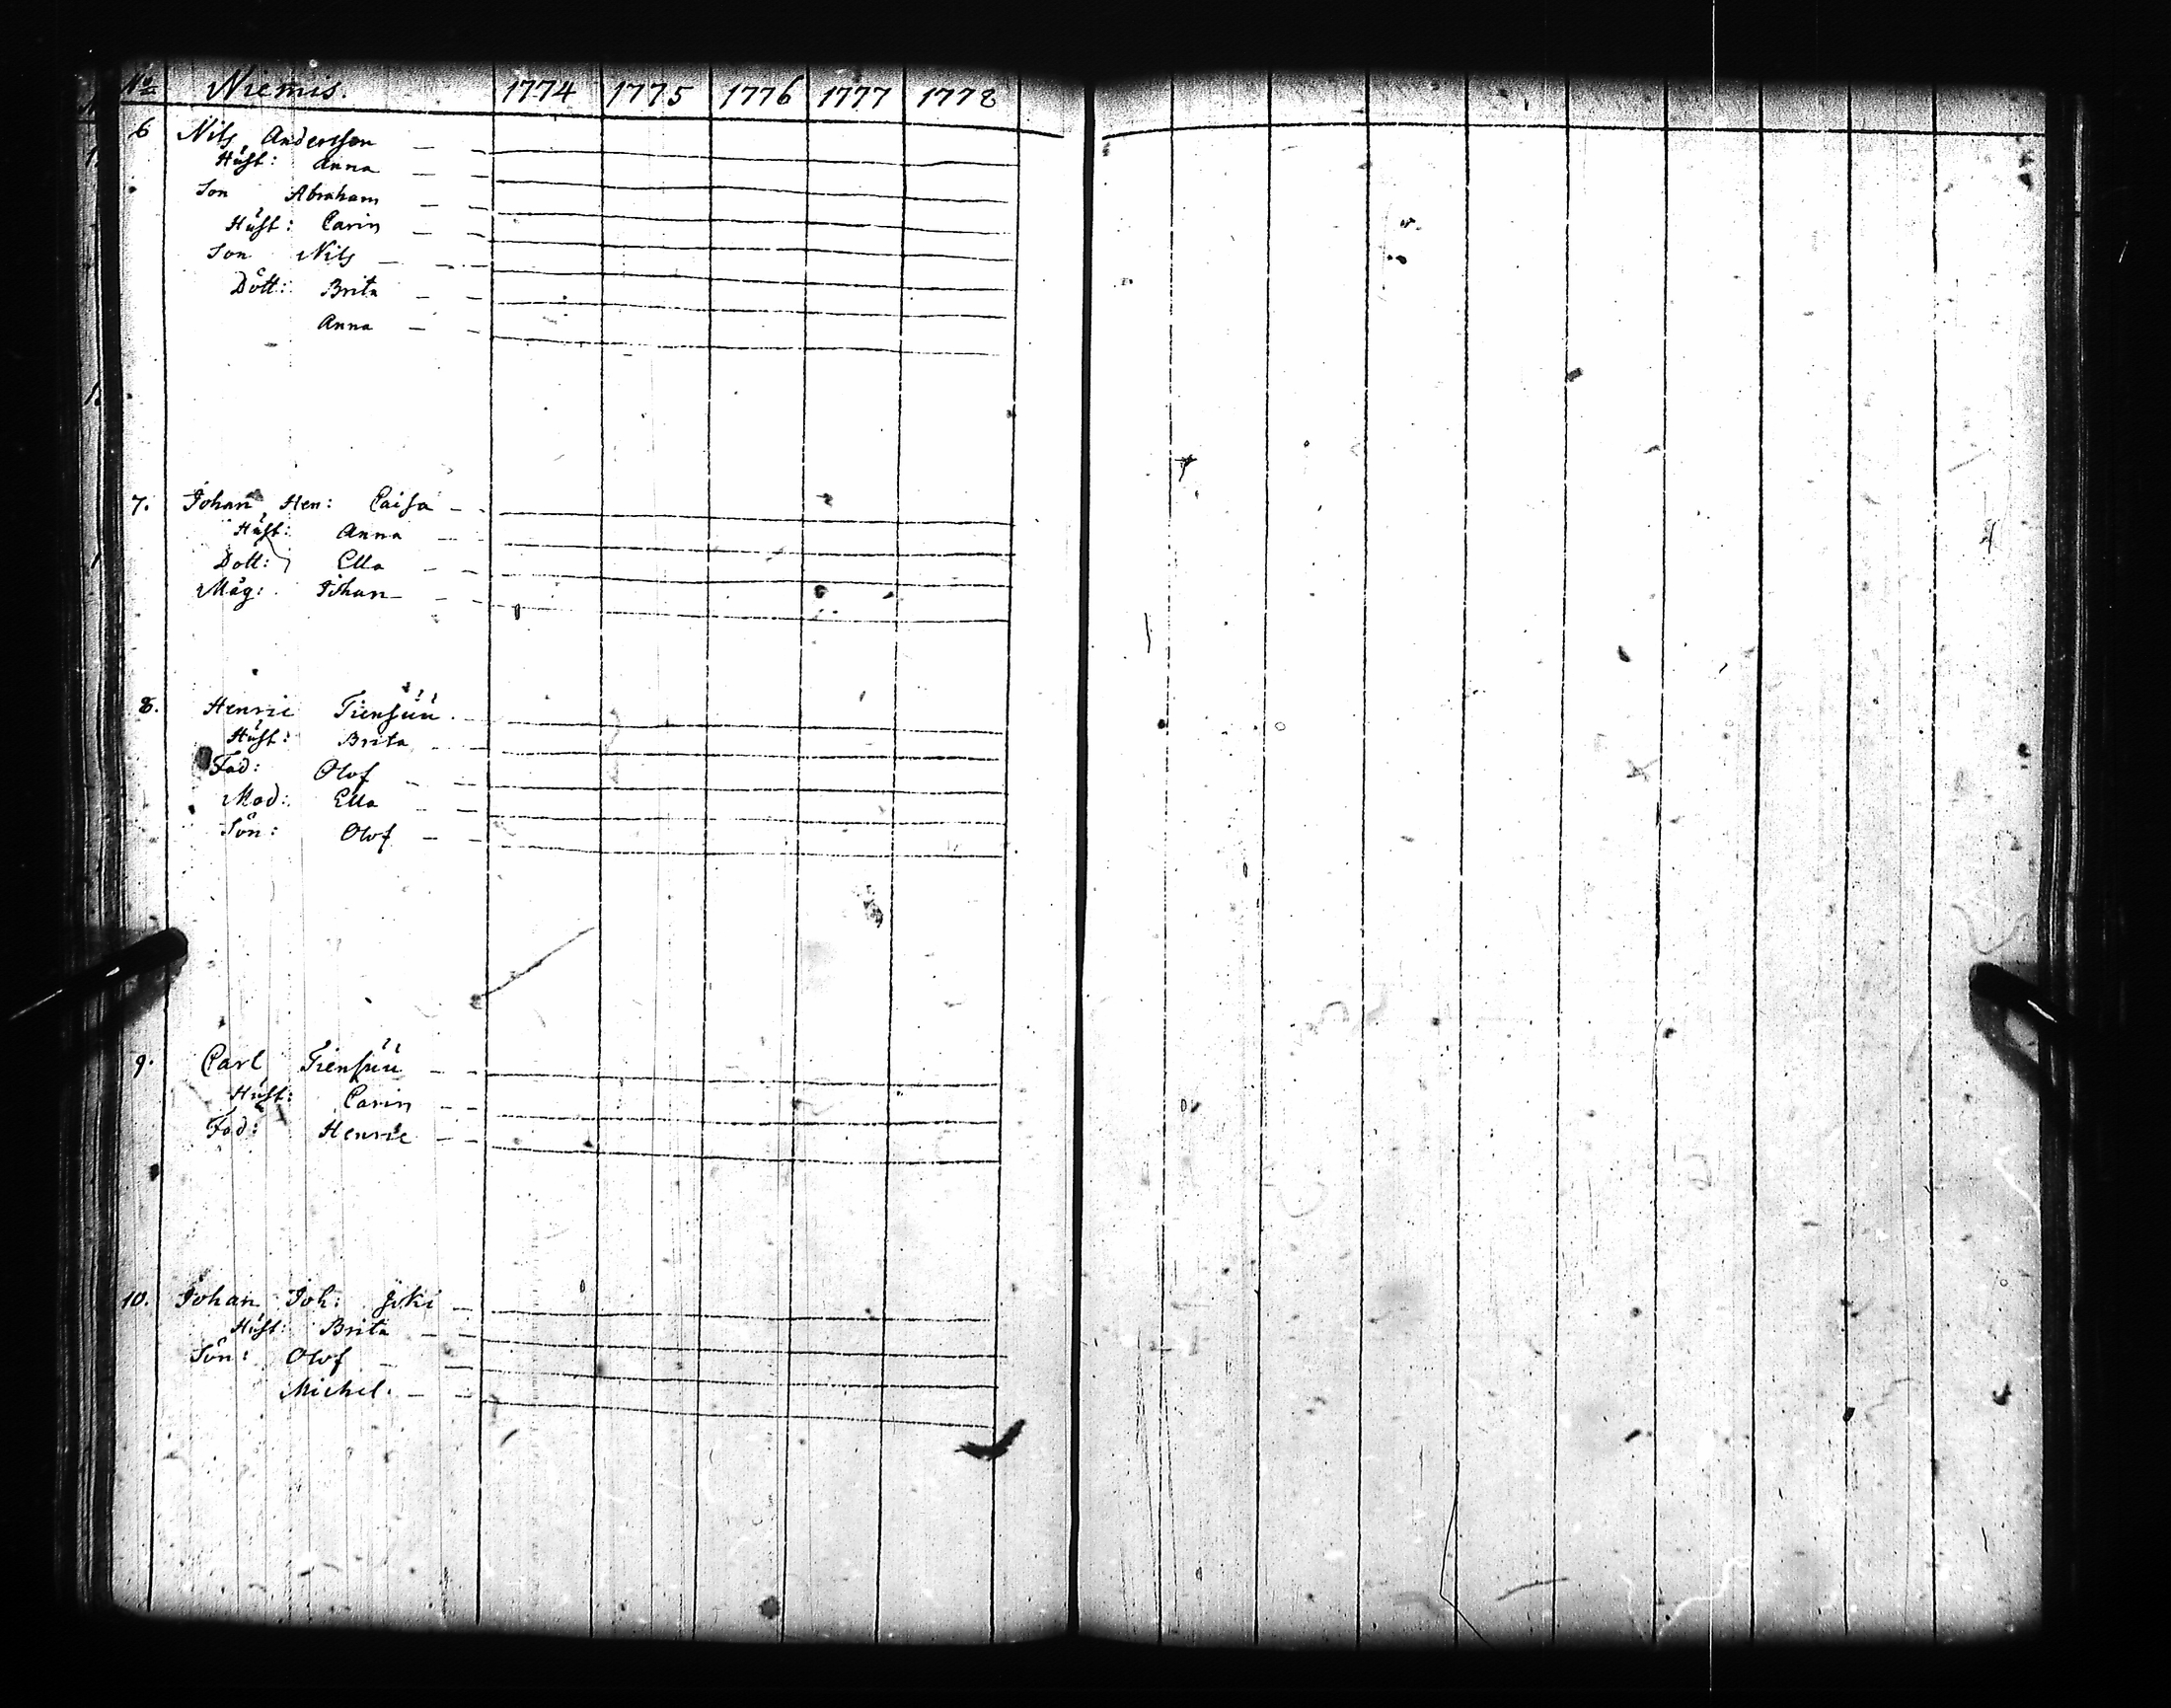 No Niemis. 1774 1775 1776 1777 1778
6 Nils Andersson
Hust: Anna
Son Abraham
Hust: Carin
Son Nils
Dött: Brita
Anna
7. Johan Hen: Caisa
Hust: Anna
Dott: Ella
Måg: Johan
8. Henric Tiensuu.
Hust: Brita
Fad: Olof
Mod: Ella
Son: Olof
9. Carl Tiensuu
Hust: Carin
Fad: Henric
10. Johan Joh: Joki
Hust: Brita
Son: Olof
Michel.